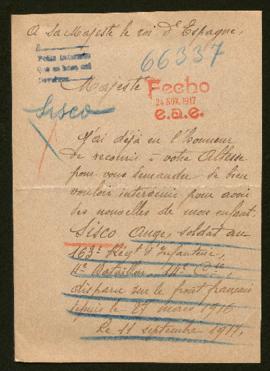 A sa Majesté le roi d'Espagne,
66337
Majesté
Fecho
24 NOV. 1917
e.a.e.
Sisco
J'ai déjà eu l'honneur
de recourir à votre Altesse
pour vous demander de bien
vouloir intervenir pour avoir
des nouvelles de mon enfant.
Sisco Ange, soldat au
163e Régt d'Infanterie,
4e Bataillon, 14e Cie,
disparu sur le front français
depuis le 29 mars 1916
Le 11 septembre 1917.